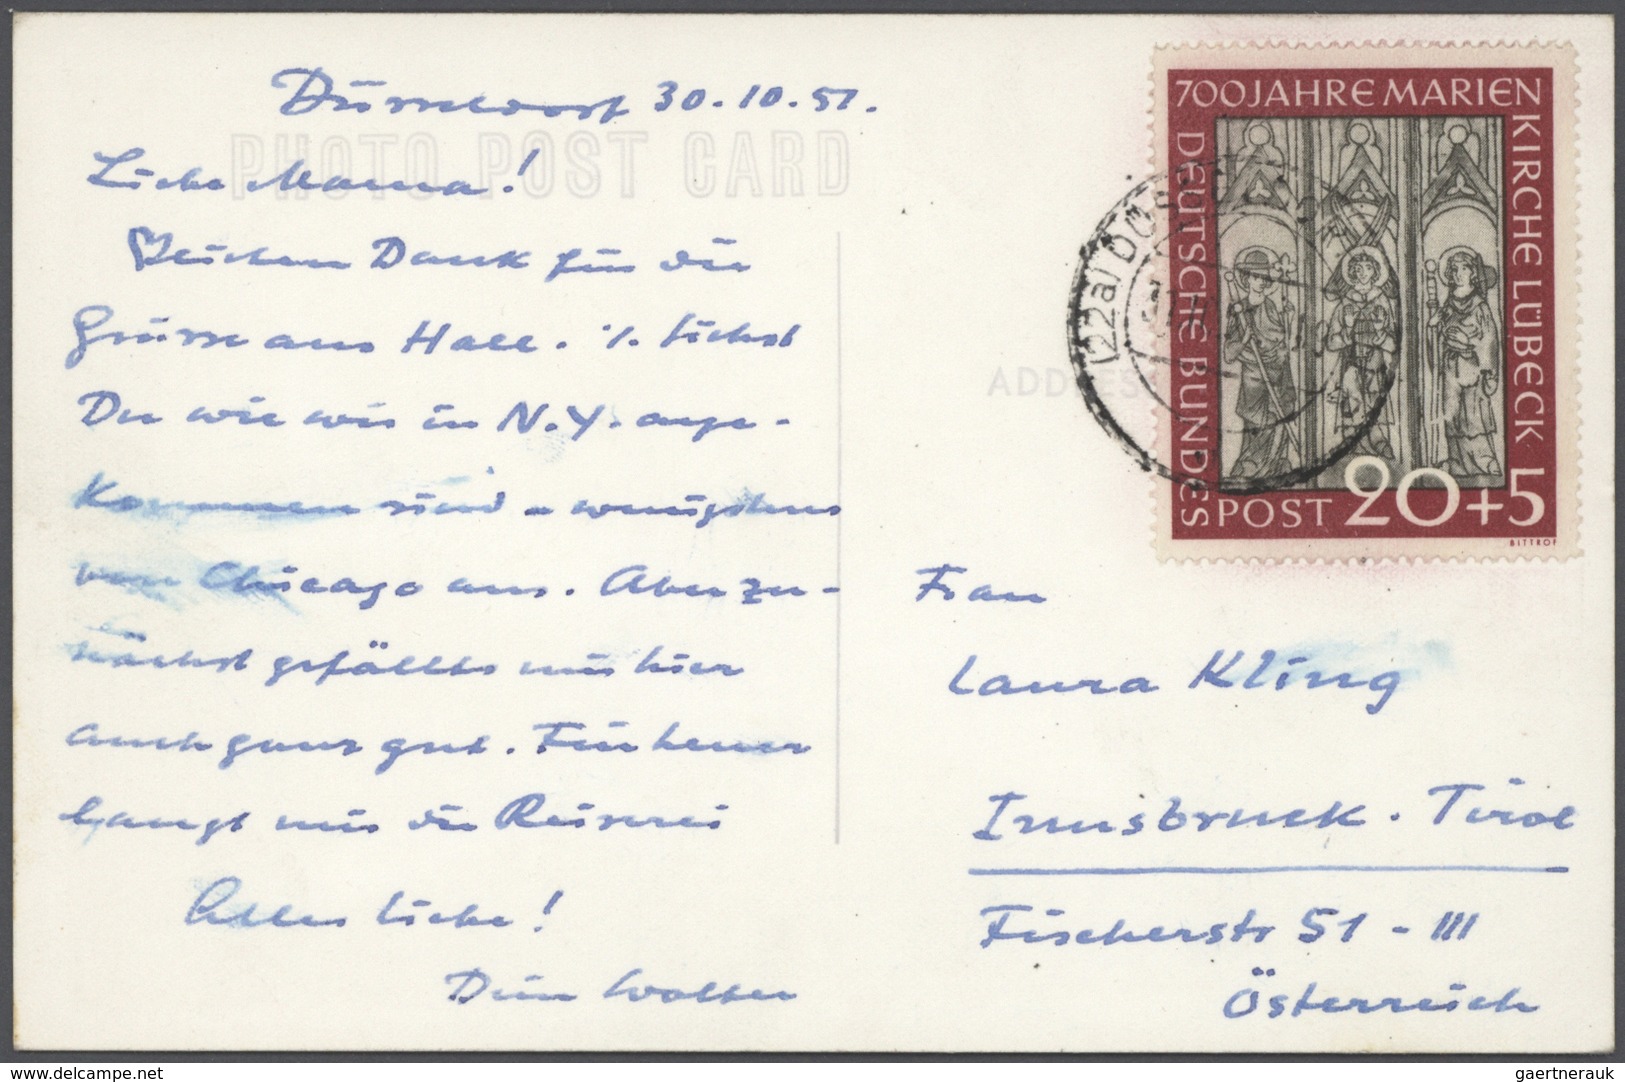 Düsseldorf 30.10.51.
PHOTO POST CARD
Liebe Mama!
Herzlichen Dank für die
Grüsse aus Hall. Siehst
Du wie wir in N.Y. ange-
kommen sind - wenigstens
von Chicago aus. Aber zu-
nächst gefällts mir hier
auch ganz gut. Für heuer
langt mir die Reiserei
Alles Liebe!
Dein Walter
700 JAHRE MARIEN
KIRCHE LÜBECK
DEUTSCHE BUNDES
POST 20+5
BITTROF
(22a) DÜSSEL
ADDRESS
Frau
Laura Kling
Innsbruck. Tirol
Fischerstr 51 - III
Österreich
www.delcampe.net
gaertnerauk